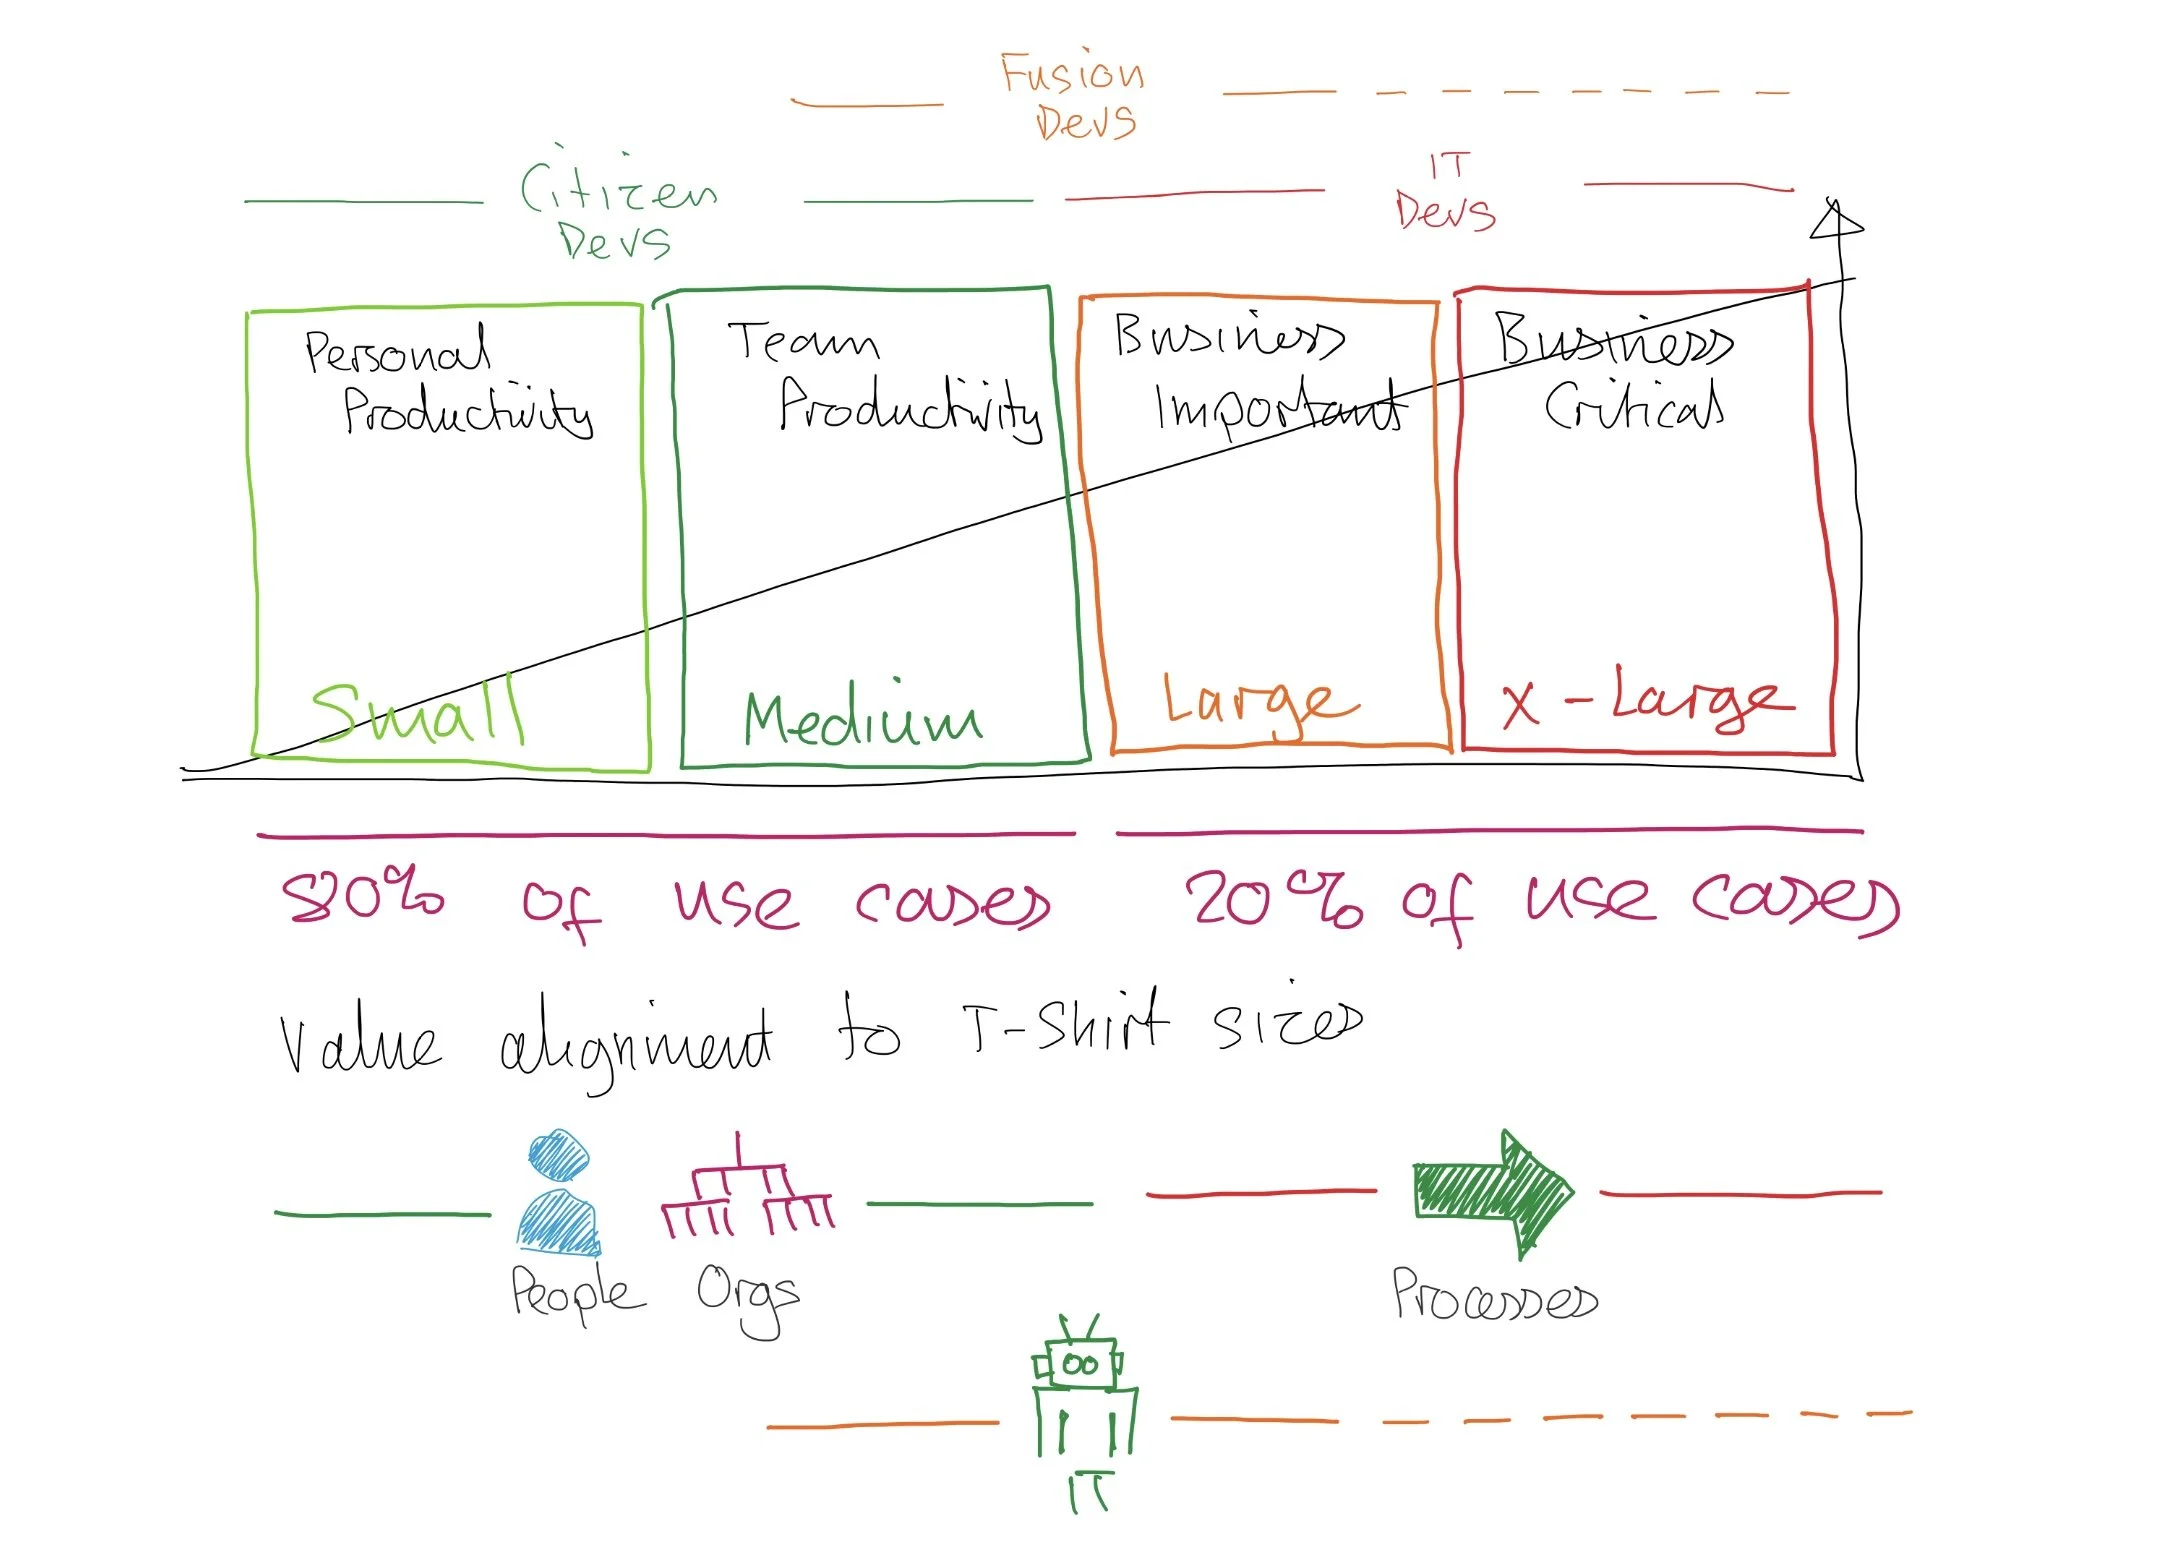 Fusion
Devs
Citizen
Devs
IT
Devs
Personal
Productivity
Team
Productivity
Business
Important
Business
Critical
Small
Medium
Large
X-Large
80% of use cases
20% of use cases
Value alignment to T-Shirt sizes
People
Orgs
Processes
IT